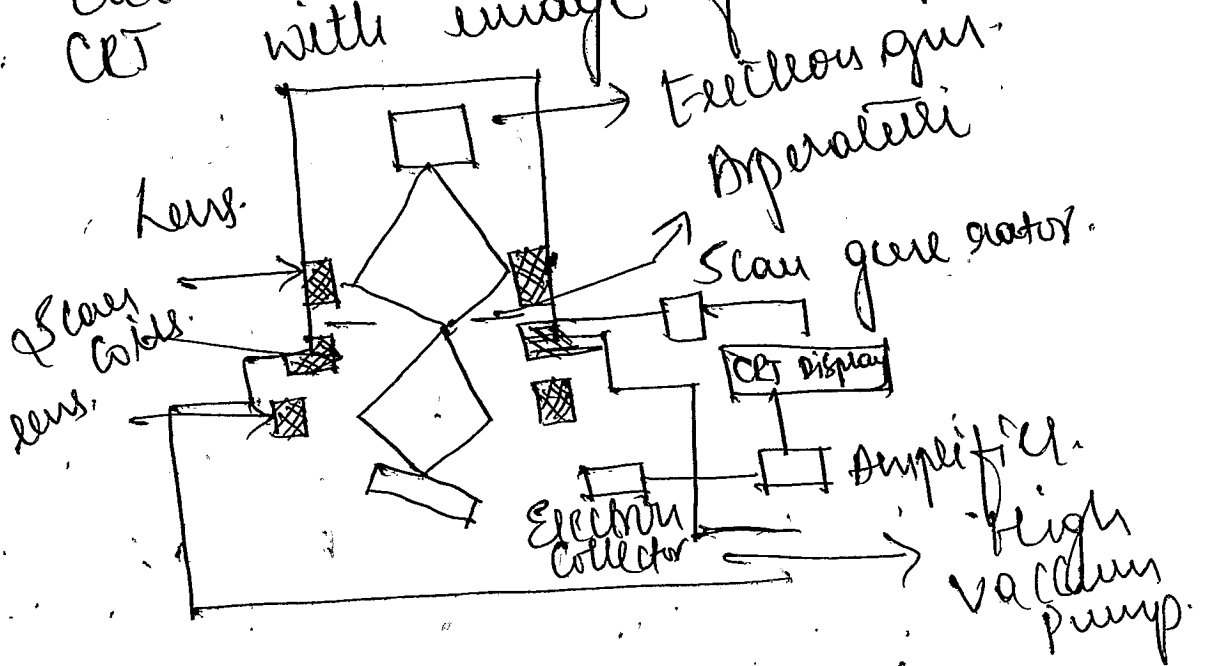 CRT with image
Electron gun.
Apperature
Lens.
Scan generator.
Scan
Coils.
CRT Display
lens.
Amplifier.
Electron
Collector
High
vaccum
Pump.